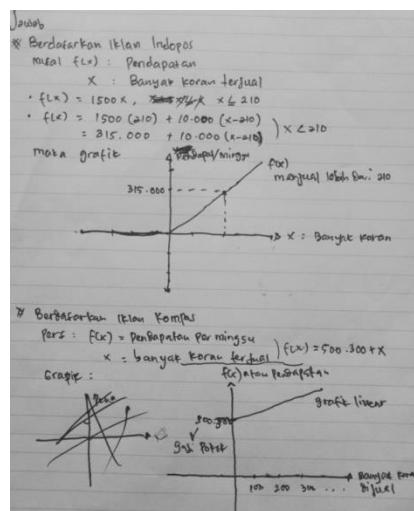 Jawab
* Berdasarkan Iklan Indopos
misal f(x) : Pendapatan
x : Banyak koran terjual
• f(x) = 1500 x, x ≤ 210
• f(x) = 1500 (210) + 10.000 (x-210)
= 315.000 + 10.000 (x-210) ) x ≤ 210
maka grafik
Pendapat/minggu
f(x)
menjual lebih dari 210
315.000
x : Banyak koran
* Berdasarkan Iklan Kompas
Pers : f(x) = Pendapatan Per minggu
x = banyak koran terjual ) f(x) = 500.300 + x
Grafik :
f(x) atau Pendapatan
grafik linear
500.300
gaji Pokok
100 200 300 ...
Banyak koran
Dijual